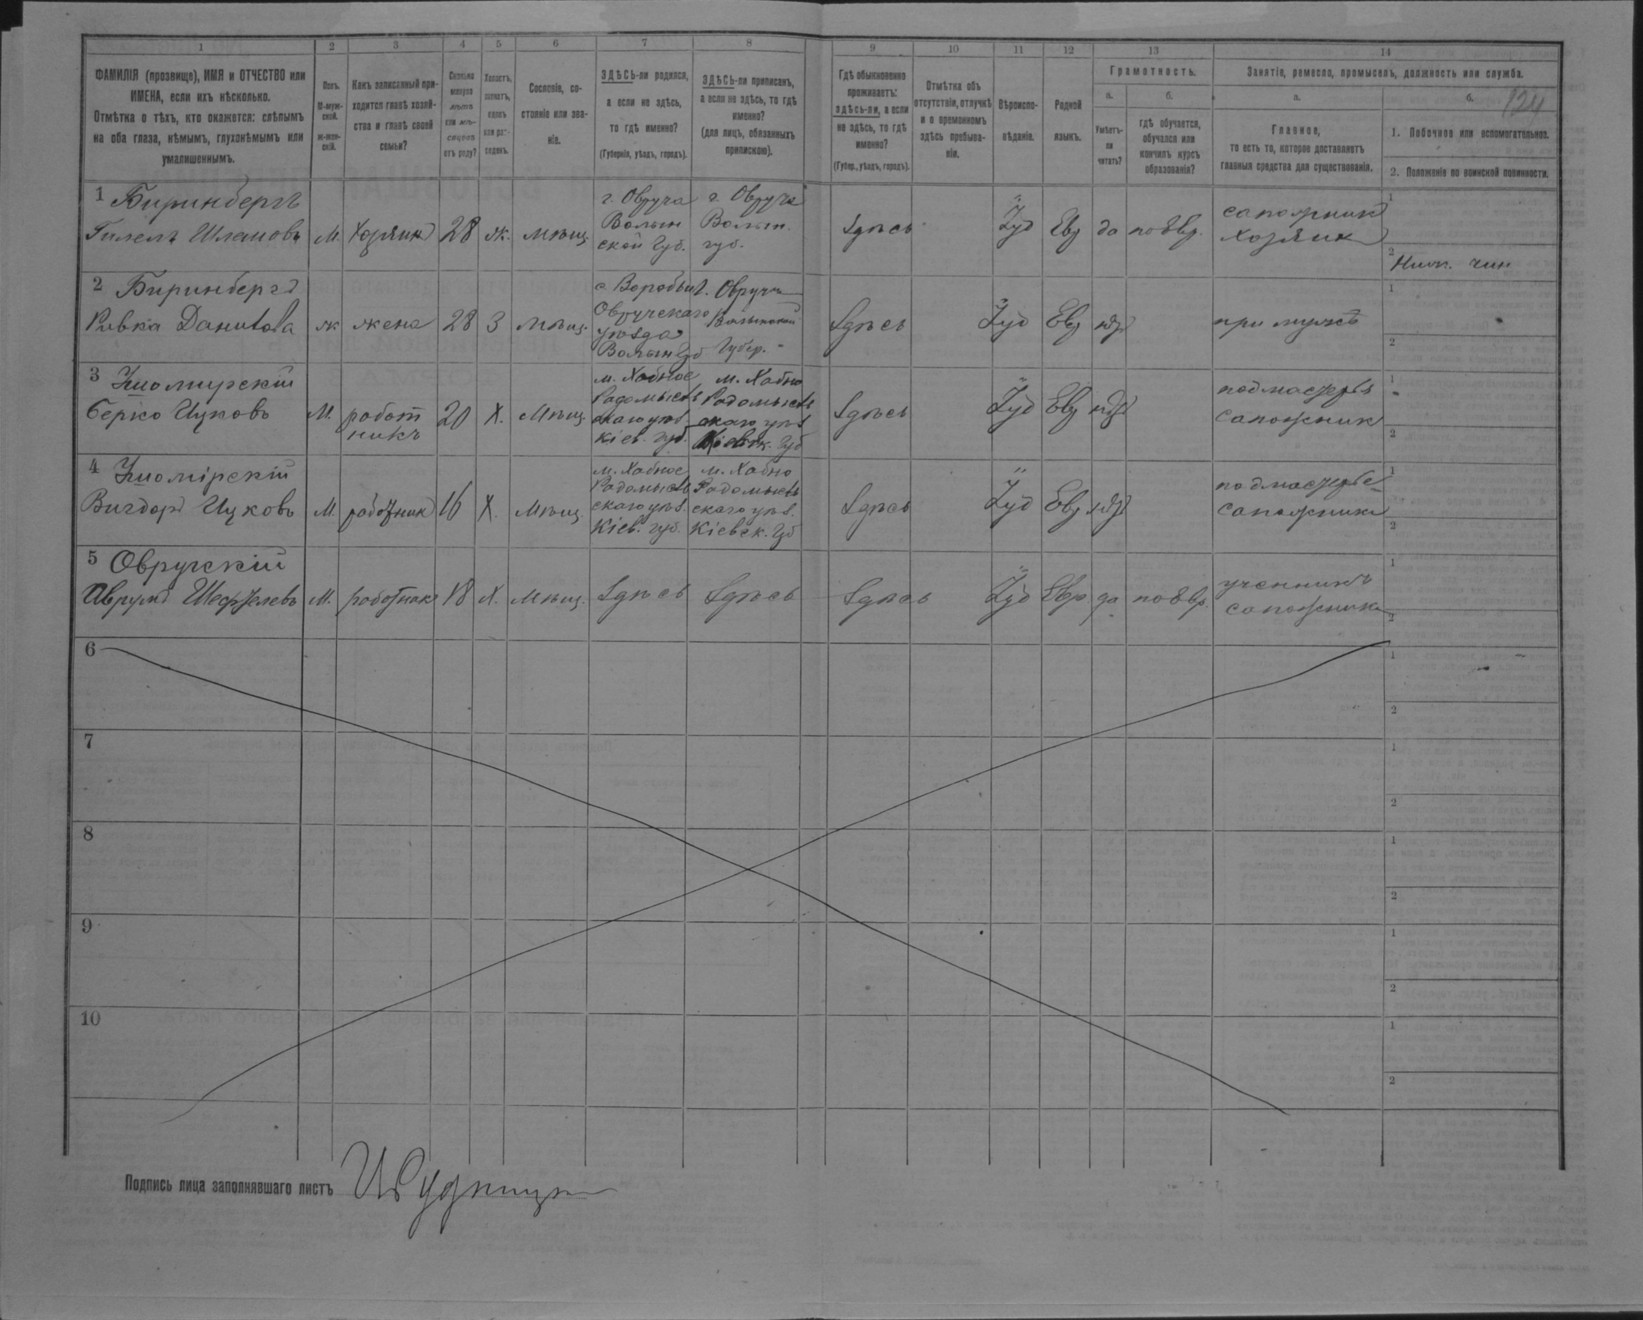 1 2 3 4 5 6 7 8 9 10 11 12 13 14
ФАМИЛІЯ (прозвище), ИМЯ и ОТЧЕСТВО или
ИМЕНА, если ихъ нѣсколько.
Отмѣтка о тѣхъ, кто окажется: слѣпымъ
на оба глаза, нѣмымъ, глухонѣмымъ или
умалишеннымъ.
Полъ.
М-муж-
ской.
ж-жен-
скій.
Какъ записанный при-
ходится главѣ хозяй-
ства и главѣ своей
семьи?
Сколько
минуло
лѣтъ
или мѣ-
сяцевъ
отъ роду?
Холостъ,
женатъ,
вдовъ
или раз-
веденъ.
Сословіе, со-
стояніе или зва-
ніе.
ЗДѢСЬ-ли родился,
а если не здѣсь,
то гдѣ именно?
(Губернія, уѣздъ, городъ).
ЗДѢСЬ-ли приписанъ,
а если не здѣсь, то гдѣ
именно?
(для лицъ, обязанныхъ
припискою).
Гдѣ обыкновенно
проживаетъ:
здѣсь-ли, а если
не здѣсь, то гдѣ
именно?
(Губер., уѣздъ, городъ).
Отмѣтка объ
отсутствіи, отлучкѣ
и о временномъ
здѣсь пребыва-
ніи.
Вѣроиспо-
вѣданіе.
Родной
языкъ.
Грамотность.
а.
Умѣетъ-
ли
читать?
б.
гдѣ обучается,
обучался или
кончилъ курсъ
образованія?
Занятіе, ремесло, промыселъ, должность или служба.
а.
Главное,
то есть то, которое доставляетъ
главныя средства для существованія.
б.
124
1. Побочное или вспомогательное.
2. Положеніе по воинской повинности.
1 Биринбергъ
Гилель Шлемовъ М. Хозяинъ 28 ж. мѣщ.
г. Овруча
Волын
ской Губ.
г. Овруча
Волын.
губ.
Здѣсь Іуд Евр да по Евр.
сапожник
хозяин
1
2
Ниж. чин
2 Биринберг
Ривка Данилова ж жена 28 З мѣщ.
с Воробьи
Овручскаго
уѣзда
Волын Губ
г. Овруча
Волынской
Губер.
Здѣсь Іуд Евр нѣт при мужѣ
1
2
3 Житомирскій
Берко Ицковъ М. работ
никъ 20 Х. Мѣщ.
м. Хабное
Радомысль
скаго уѣз.
Кіев. губ.
м. Хабно
Радомысль
скаго уѣз.
Кіевск. Губ
Здѣсь Іуд Евр нѣт
подмастерье
сапожник
1
2
4 Житомірскій
Вигдор Ицковъ М. работник 16 Х. Мѣщ.
м. Хабное
Радомысль
скаго уѣз.
Кіев. губ.
м. Хабно
Радомысль
скаго уѣз.
Кіевск. Губ
Здѣсь Іуд Евр нѣт
подмастерье
сапожника
1
2
5 Овручскій
Аврумъ М. работник 18 Х. Мѣщ. Здѣсь Здѣсь Здѣсь Іуд Евр да по Евр.
ученикъ
сапожника
1
2
6
1
2
7
1
2
8
1
2
9
1
2
10
1
2
Подпись лица заполнявшаго листъ